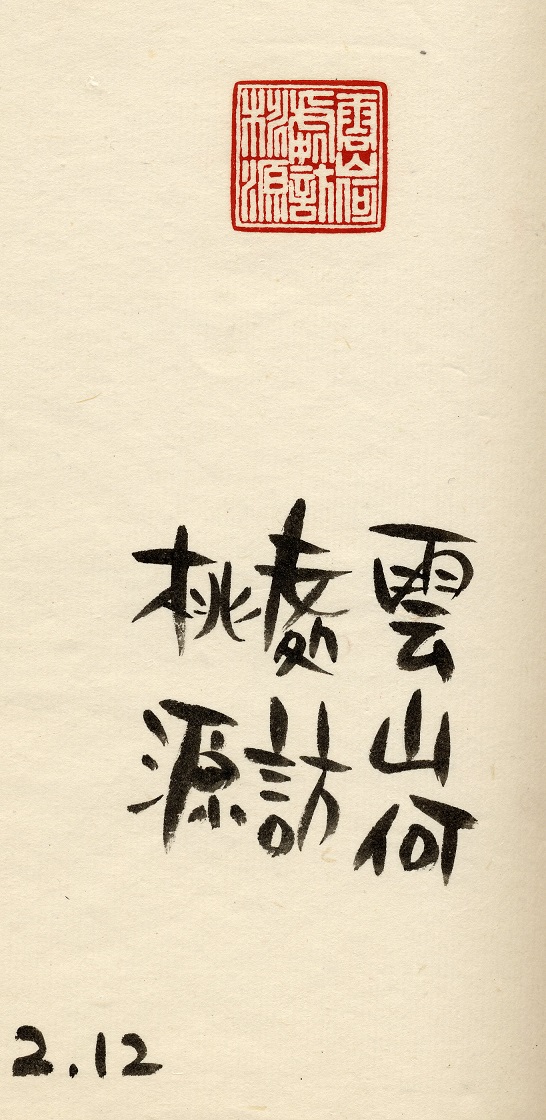 雲山何
處訪
桃源
雲山何
處訪
桃源
2.12